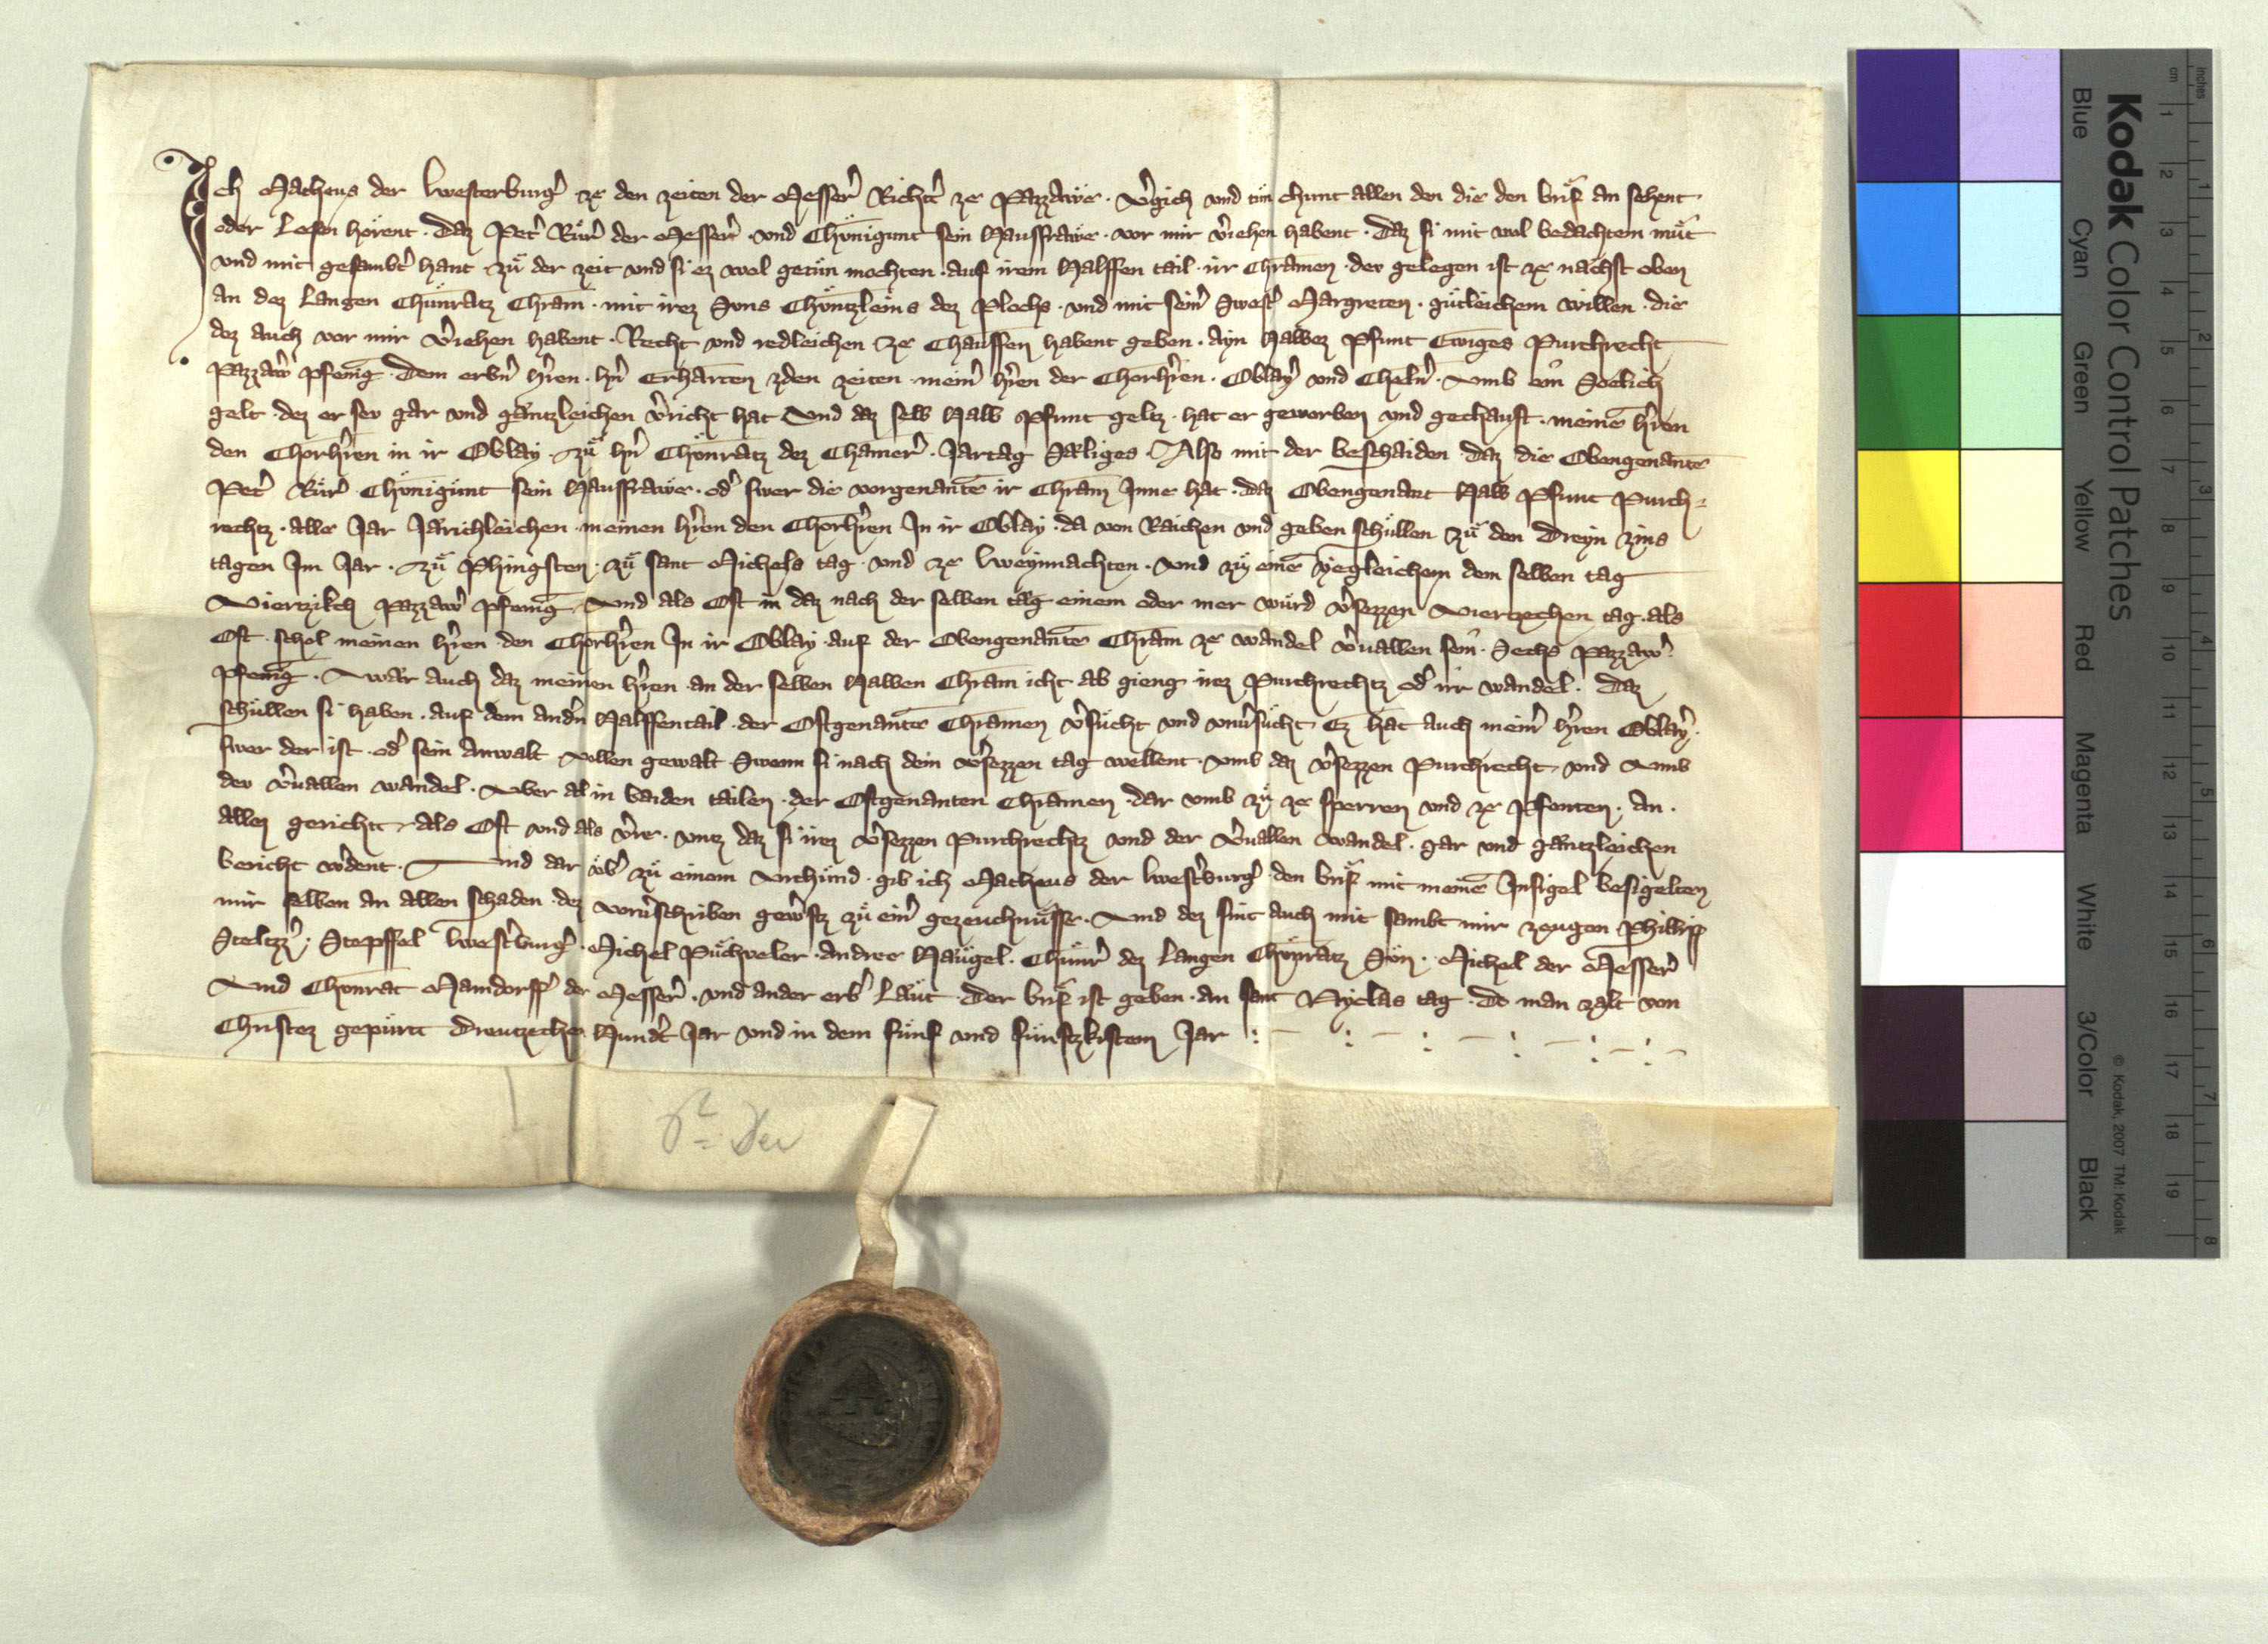 Ich Matheus der Westerburg̾ ze den zeiten der Messer̾ Richt̾ ze Pazzawe · V̾gich vnd tuͤn chunt allen den die den brif an sehent
oder Lesen hoͤrent · Daz Pet̾ Ruͤr̾ der Messer̾ · vnd Choͤnigunt sein Hausfrawe · vor mir v̾iehen habent · Daz si mit wol bedachtem muͤt
vnd mit gesambt̾ hant zuͤ der zeit vnd si ez wol getuͤn mochten · auf irem Halffen tail · ir Chramen · der gelegen ist ze nachst oben
an dez Langen Chuͤnratz Chram · mit irez Suns Choͤntzleins dez Plochs · vnd mit sein̾ Swest̾ Margreten · guͤtleichem willen · die
dez auch vor mir v̾iehen habent · Recht vnd redleichen ze Chauffen habent geben · ayn Halbez Pfunt Ewiges Purchrecht
Pazzaw̾ pfenīg · Dem erb̾n h̾ren · h̾n Erharten zden zeiten mein̾ h̾ren der Chorh̾ren · Oblay̾ vnd Cheln̾ · Vmb ein Soelich
gelt · dez er sev gar vnd gaͤntzleichen v̾richt hat Vnd daz selb Halb Pfunt geltz · hat er geworben vnd gechauft · meinē h̾ren
den Chorh̾ren in ir Oblay · zuͤ h̾n Choͤnratz dez Chamer̾ · Jartag Saͤliges · Also mit der beschaiden daz die Obengenantē
Pet̾ Ruͤr̾ Choͤnigunt sein Hausfrawe · od̾ swer die vorgenantē ir Chram Inne hat · daz Obengenant Halb Pfunt Purch=
rechtz · alle Jar Jaͤrichleichen · meinen h̾ren den Chorh̾ren In ir Oblay · da von Raichen vnd geben schuͤllen zuͤ den Dreyn zins
tagen Im Jar · zuͤ Phingsten · zuͤ sant Michels tag · vnd ze Weynnachten · vnd zuͤ einē yegleichem dem selben tag
Viertzikch Pazzaw̾ pfenīg Vnd als Oft in daz nach der selben taͤg einem oder mer wuͤrd v̾sezzen Viertzechen tag · als
Oft · schol meinen h̾ren den Chorh̾ren In ir Oblay · auf der Obengenantē Chram ze wandel v̾uallen sein · Sechs Pazzaw̾
pfenīg · Waͤr auch daz meinen h̾ren · an der selben Halben Chram icht ab gieng irez Purchrechtz od̾ ir wandel · Daz
schuͤllen si haben · auf dem and̾n Halffentail · der Oftgenantē Chramen v̾suͤcht vnd vnu̾suͤcht Ez hat auch mein̾ h̾ren Oblay̾
swer der ist · od̾ sein Anwalt vollen gewalt Swenn si nach dem v̾sezzen tag wellent · vmb daz v̾sezzen Purchrecht vnd Vmb
dev v̾uallen wandel · Vber al in baiden tailen · der Oftgenanten Chramen · dar vmb zuͤ ze sperren vnd ze Pfenten · an ·
allez gericht als Oft vnd als v̾re · vntz daz si irez v̾sezzen Purchrechtz vnd der v̾uallen wandel · gar vnd gaͤntzleichen
bericht w̾dent · Vnd dar vͤb̾ zuͤ einem Vrchuͤnd · gib ich Matheus der West̾burg̾ den brif mit meinē Insigel besigelten
mir selben an allen schaden · dez voru̾schriben gew̾ftz zuͤ ein̾ gezeuchnuͤsse · Vnd dez sint auch mit sambt mir zeugen Phillipp
Steltzz̾ · Stepffel West̾burg̾ · Michel Puͤchveler · andree Nauͤgel · Chuͤnr̾ dez Langen Choͤnratz Suͤn · Michel der Messer̾
Vnd Chonrat Mamdorff̾ der Messer̾ · vnd ander erb̾ Laͤut · Der brif ist geben · an sant Nyclas tag · Do man zalt von
Christez gepuͤrtt Dreutzechen Hund̾t Jar vnd in dem fuͤnf vnd fuͤnftzkistem Jar
Kodak Color Control Patches
Blue Cyan Green Yellow Red Magenta White 3/Color Black
© Kodak, 2007 TM: Kodak
inches 1 2 3 4 5 6 7 8
cm 1 2 3 4 5 6 7 8 9 10 11 12 13 14 15 16 17 18 19